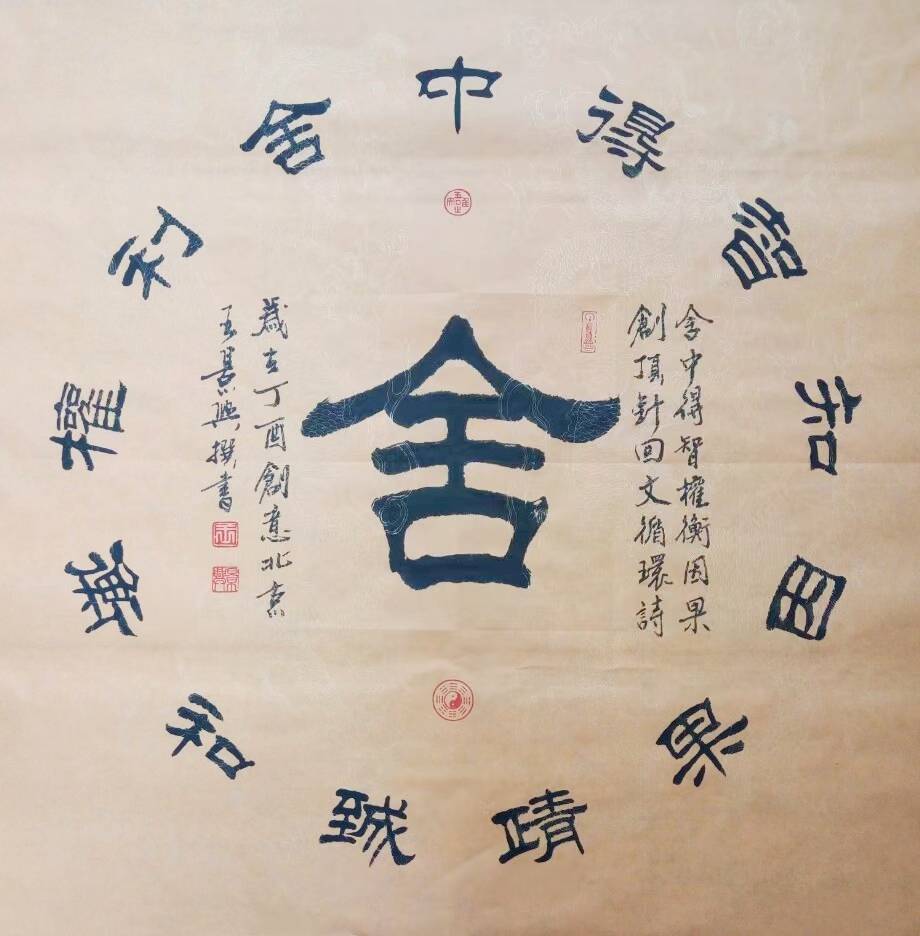 舍
中
得
智
知
因
果
靖
和
衡
權
利
舍
舍中得智權衡因果
創頂針回文循環詩
歲在丁酉創意北京
王景興撰書